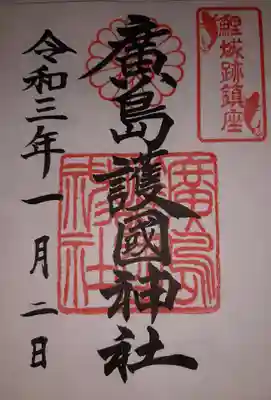 鯉城跡鎮座
廣島護國神社
令和三年一月二日
廣島
護國
神社